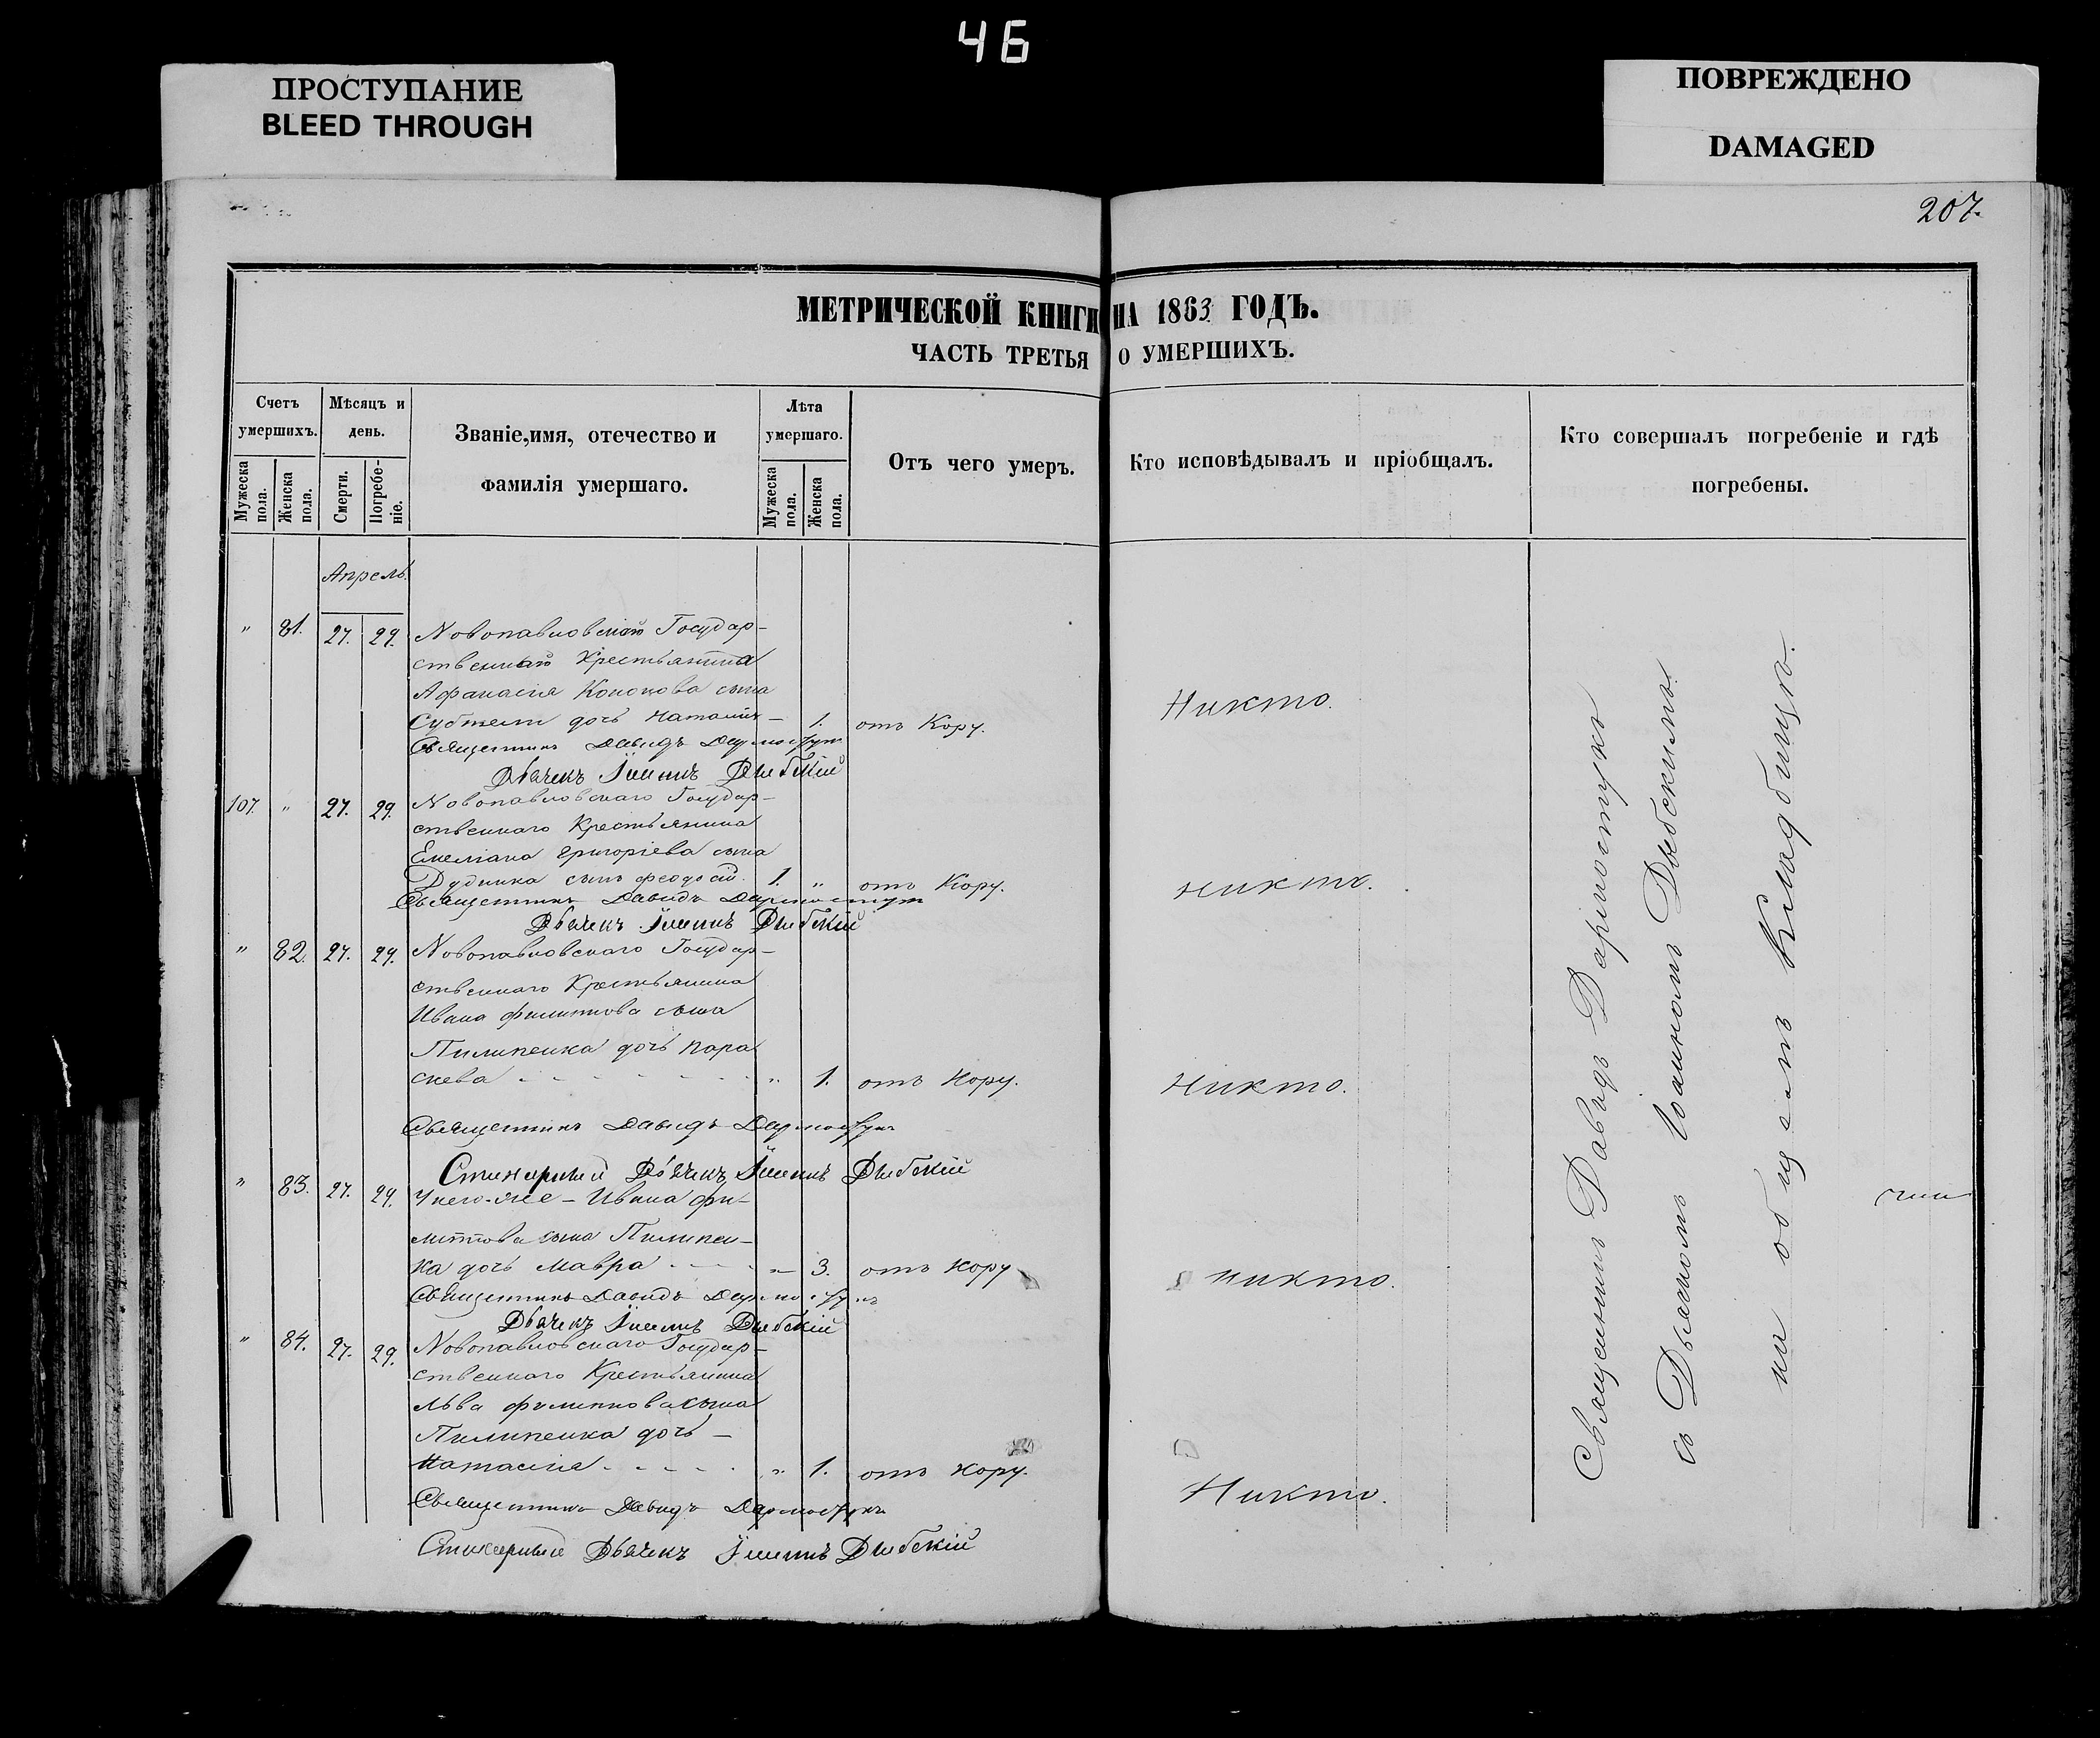 46
ПРОСТУПАНИЕ
BLEED THROUGH
ПОВРЕЖДЕНО
DAMAGED
207.
МЕТРИЧЕСКОЙ КНИГИ НА 1863 ГОДЪ.
ЧАСТЬ ТРЕТЬЯ О УМЕРШИХЪ.
Счетъ умершихъ.
Мужеска пола.
Женска пола.
Мѣсяцъ и день.
Смерти.
Погребеніе.
Званіе, имя, отечество и фамилія умершаго.
Лѣта умершаго.
Мужеска пола.
Женска пола.
Отъ чего умеръ.
Кто исповѣдывалъ и пріобщалъ.
Кто совершалъ погребеніе и гдѣ погребены.
Апрель.
" 81. 27. 29. Новопавловскаго Государ-
ственнаго Крестьянина
Афанасія Кононова сына
дочь Наталія - 1. отъ Кору. Никто.
Священникъ Давидъ
Дьячекъ Іоаннъ Дыбскій
107. " 27. 29. Новопавловскаго Государ-
ственнаго Крестьянина
Емеліана Григоріева сына
Дудника сынъ Феодосій. 1. " отъ Кору. никто.
Священникъ Давидъ
Дьячекъ Іоаннъ Дыбскій
" 82. 27. 29. Новопавловскаго Государ-
ственнаго Крестьянина
Ивана Филиппова сына
Пилипенка дочь Пара
скева " 1. отъ Кору. Никто.
Священникъ Давидъ
Стихарный Дьячекъ Іоаннъ Дыбскій
" 83. 27. 29. Унего-же - Ивана Фи-
липпова сына Пилипен-
ка дочь Мавра " 3. отъ Кору никто.
Священникъ Давидъ
Дьячекъ Іоаннъ Дыбскій
" 84. 27. 29. Новопавловскаго Государ-
ственнаго Крестьянина
Льва Филиппова сына
Пилипенка дочь -
Наталія " 1. отъ Кору. Никто.
Священникъ Давидъ
Стихарный Дьячекъ Іоаннъ Дыбскій
Священникъ Давидъ
съ Дьячкомъ Іоанномъ Дыбскимъ.
на общемъ Кладбищѣ.